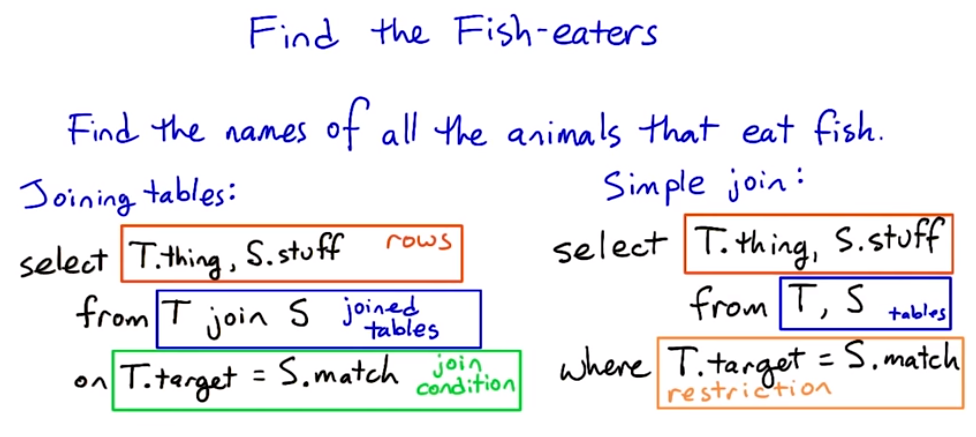 Find the Fish-eaters
Find the names of all the animals that eat fish.
Joining tables:
select T.thing, S.stuff rows
from T join S joined tables
on T.target = S.match join condition
Simple join:
select T.thing, S.stuff
from T, S tables
where T.target = S.match
restriction